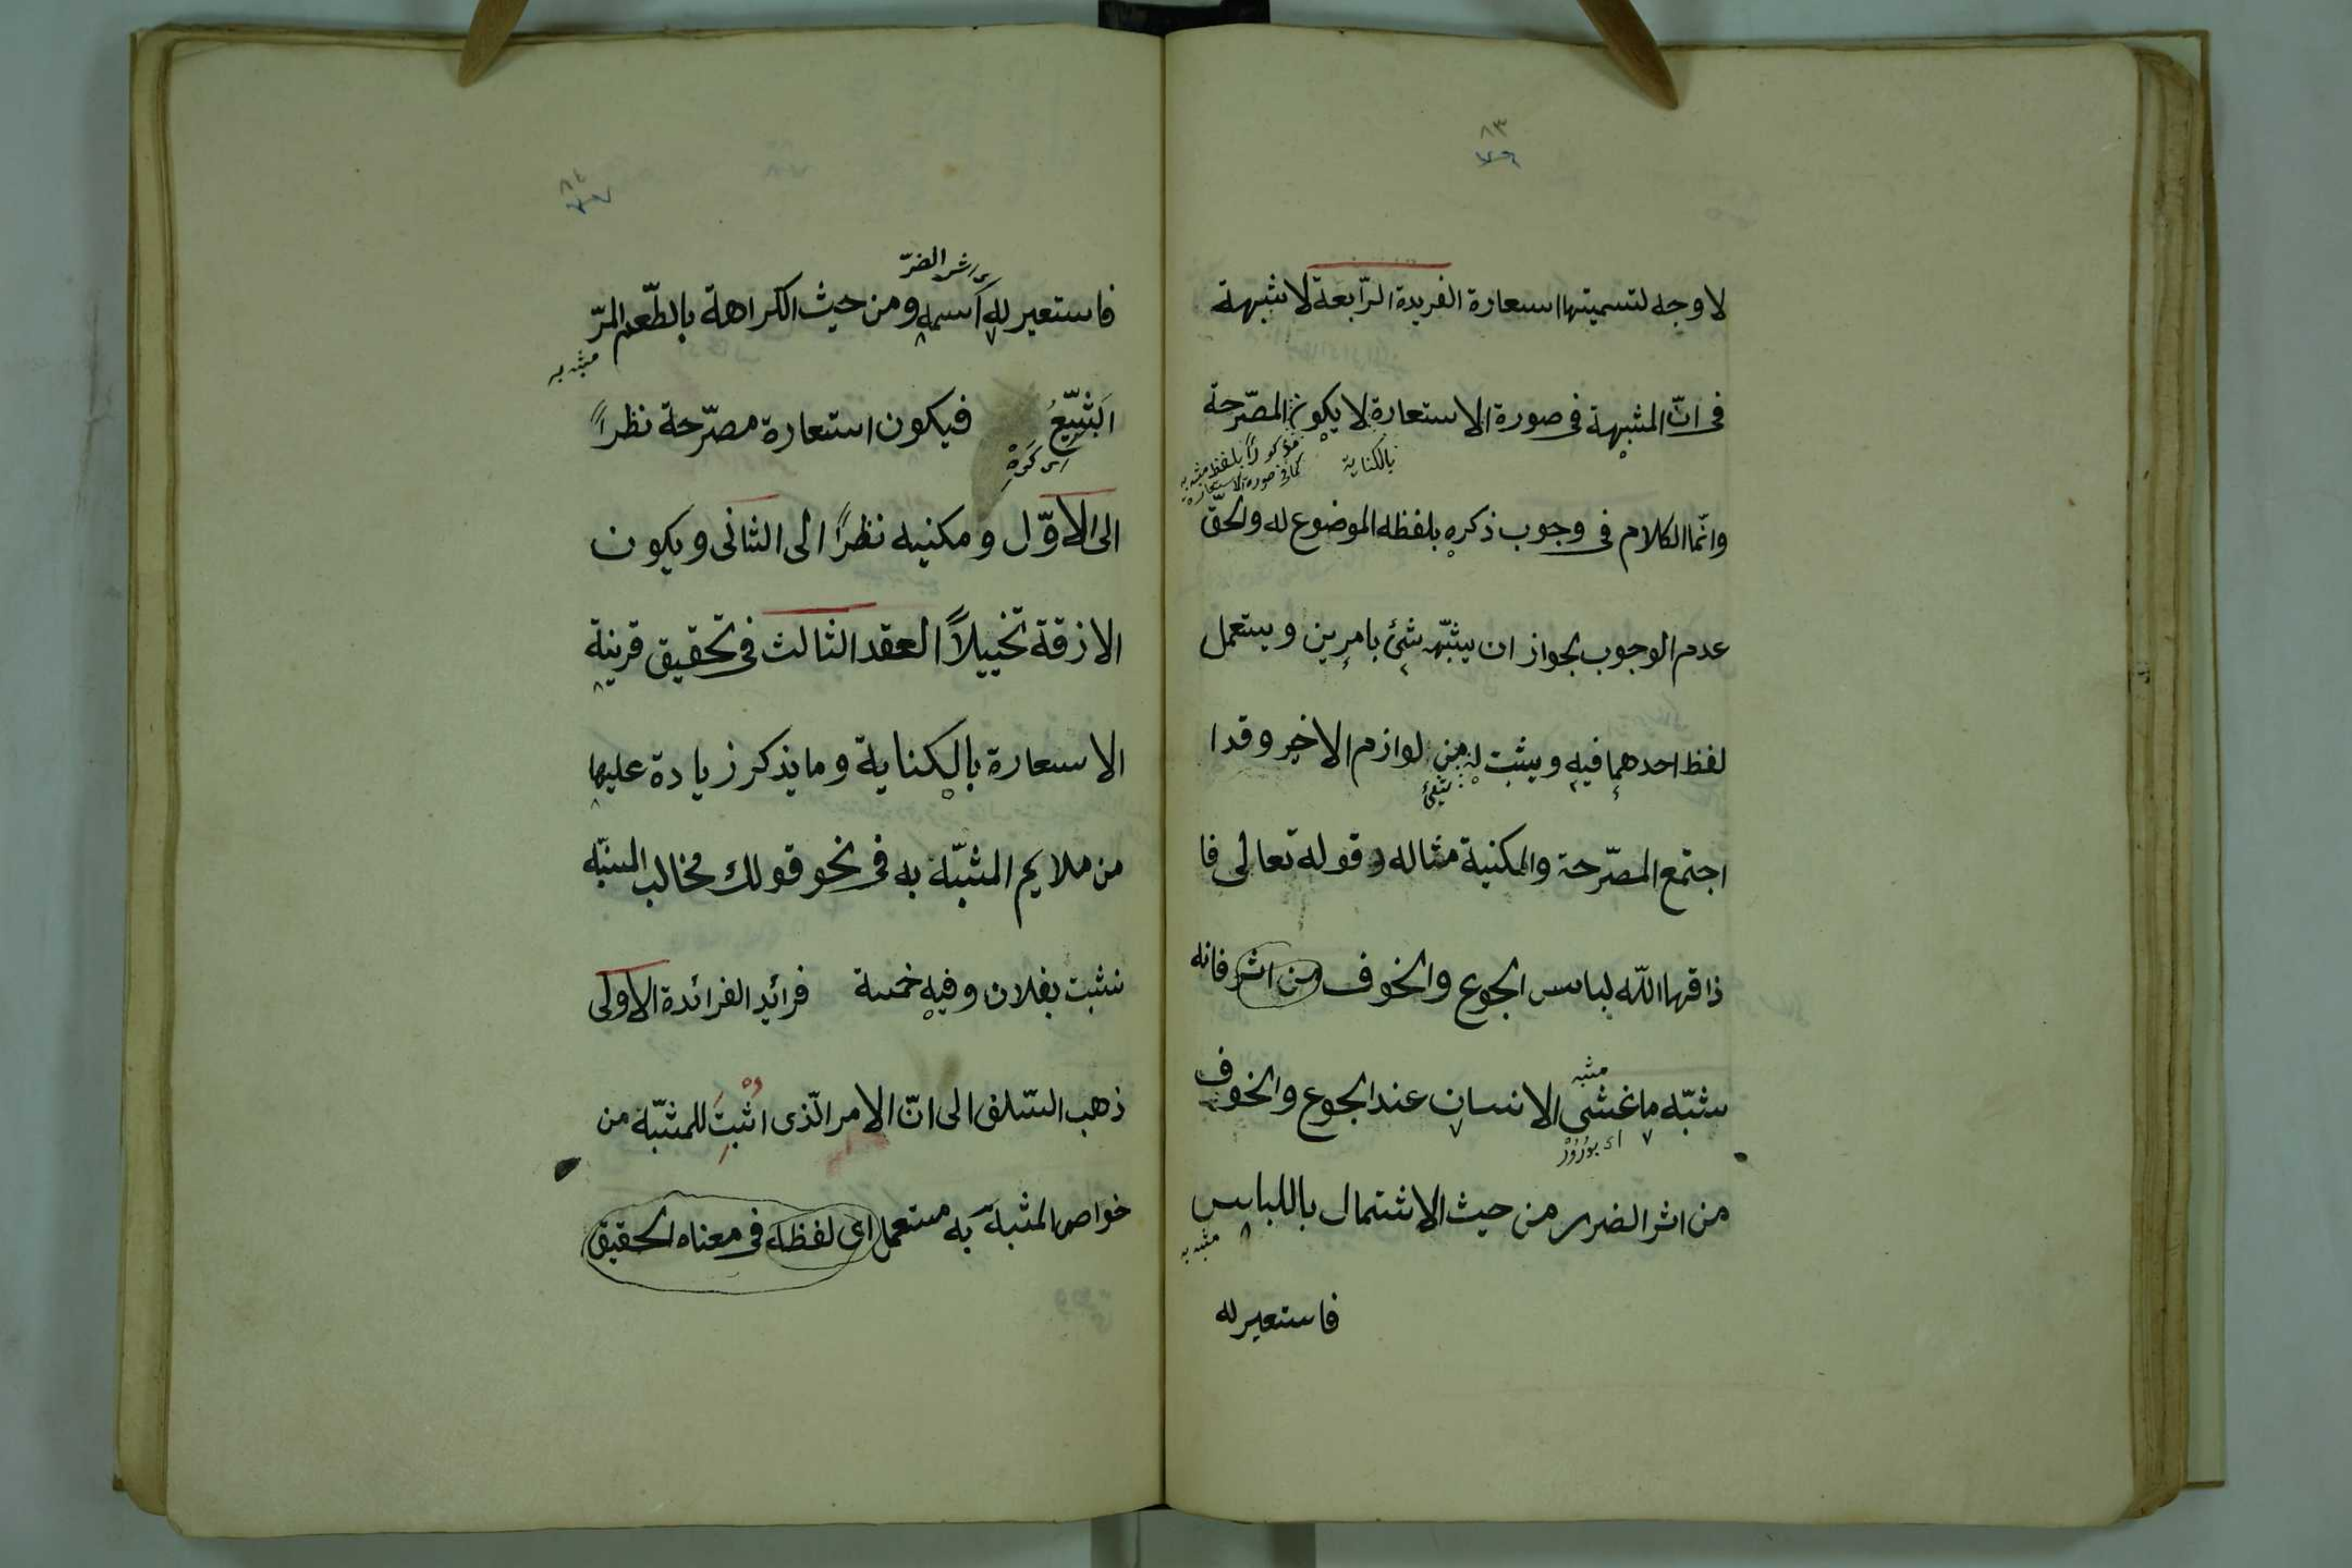 ٨٣
لا وجه لتسميتها اسعارة الفريدة الرّابعة لا شبهة
فى انّ المشبهة فى صورة الاستعارة لا يكون المصّرحة
بالكناية
مذكوراً بلفظ مشبه به
كما فى صورة الاستعارة
وانّما الكلام فى وجوب ذكره بلفظه الموضوع له والحقّ
عدم الوجوب بجواز ان يشبّه شئ بامرين ويستعمل
لفظ احدهما فيه ويثبت له من لوازم الاخر وقد ا
اجتمع المصّرحة والمكنية مثاله قوله تعالى فا
ذاقها اللّه لباس الجوع والخوف من اثر فانه
مشبه
شبّه ما غشى الانسان عند الجوع والخوف
من اثر الضرر من حيث الاشتمال باللباس
مشبه به
فاستعير له
٨٤
اثر الضرّ
فاستعير له اسمه ومن حيث الكراهة بالطّعم المرّ
مشبه به
البَشِيّعُ فيكون استعارة مصّرحة نظراً
الى الاوّل ومكنيه نظراً الى الثانى ويكون
الازقة تخييلاً العقد الثالث فى تحقيق قرينة
الاسعارة بالكناية وما يذكر زيادة عليها
من ملايم المشبّة به فى نحو قولك مخالب المنيّه
نشبت بفلان وفيه خمسة فرائد الفرائدة الاولى
ذهب السّلف الى انّ الامر الّذى اثبت للمشبّة من
خواص المشبهّ به مستعمل اى لفظه فى معناه الحقيقى